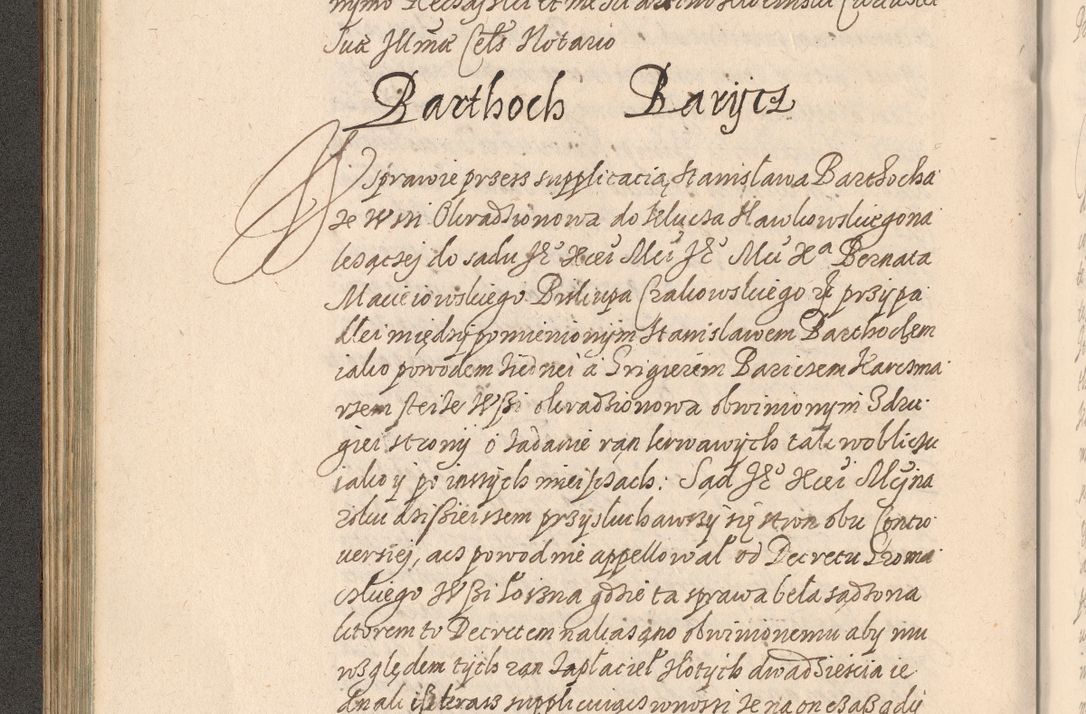 Suæ Illmæ Cels Notario
Barthoch Barycz
W sprawie przess supplicacią Stanisława Barthocha
ze wsi Okradzionowa do klucza Sławkowskiego na
lezączej do sadu Je Xcei Mci Je Mci Xa Bernata
Macieiowskiego Biskupa Crakowskiego przypa
dłei między pomienionym Stanisławem Barthochem
iako powodem ziednei a Grigierem Bariczem Karczma
rzem steize wsi okradzionowa obwinionym zdru
giei strony o zadanie ran krwawych tak woblicżu
iako y po inszych mieiscach: Sąd Je Xcei Mcy na
roku dzisieiszem przysłuchawszy się stron obu Contro
uersiej, acz powod nie appellował od Decretu Groma
czkiego wsi Łoszna gdzie ta sprawa beła sadzona
ktorem to Decretem nakazano obwinionemu aby mu
względem tych ran zapłacieł złotych dwadziescia ie
dnak isz teraz supplikuiącz wnosi ze na onczas sądu